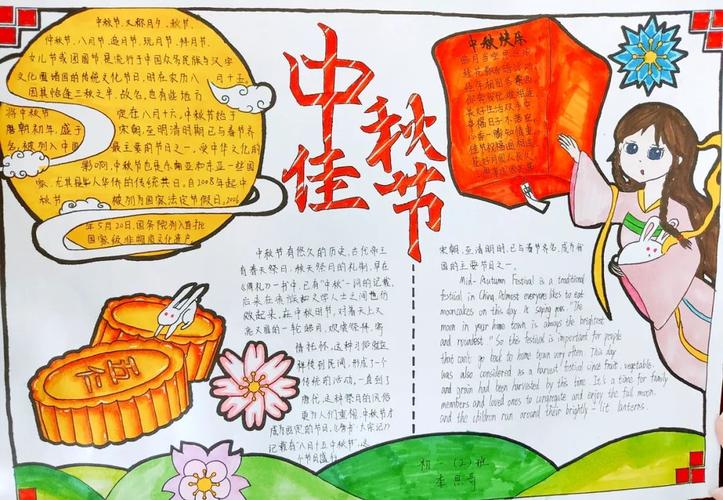 中秋佳节
中秋节,又称月夕、秋节、
仲秋节、八月节、追月节、玩月节、拜月节、
女儿节或团圆节是流行于中国众多民族与汉字
文化圈诸国的传统文化节日,时在农历八月十五,
因其恰逢三秋之半,故名,也有些地方
将中秋节定在八月十六,中秋节始于
唐朝初年,盛于宋朝,至明清时期已与春节齐
名,被列入中国最主要的节日之一,受中华文化的
影响,中秋节也是东南亚和东亚一些国
家,尤其是华人华侨的传统共日,自2008年起中秋
节被列为国家法定节假日,2006
年5月20日,国务院列入首批
国家级非物质文化遗产。
中秋快乐
中秋节有悠久的历史,古代帝王
有春天祭日,秋天祭月的礼制,早在
《周礼》一书中,已有"中秋"一词的记载,
后来贵族和文学人士之间也仿
效起来,在中秋时节,对着天上又
亮又圆的一轮皓月,观赏祭拜,寄
情托怀,这种习俗就这
样传到民间,形成了一个
传统的活动,一直到了
唐代,这种祭月的风俗
更为人们重视,中秋节才
成为固定的节日,《唐书·太宗记》
记载有"八月十五中秋节",这
个节日盛行
宋朝,至清明时,已与春节齐名,成为我
国的主要节日之一。
Mid-Autumn Festival is a traditional
festival in China. Almost everyone likes to eat
mooncakes on this day. It saying goes, "The
moon in your home town is always the brightest
and roundest." So this festival is important for people
that can't go back to home town very often. This day
was also considered as a harvest festival since fruit, vegetable
and grain had been harvested by this time. It is a time for family
members and loved ones to congregate and enjoy the full moon.
and the children run around their brightly-lit lanterns.
初一(2)班